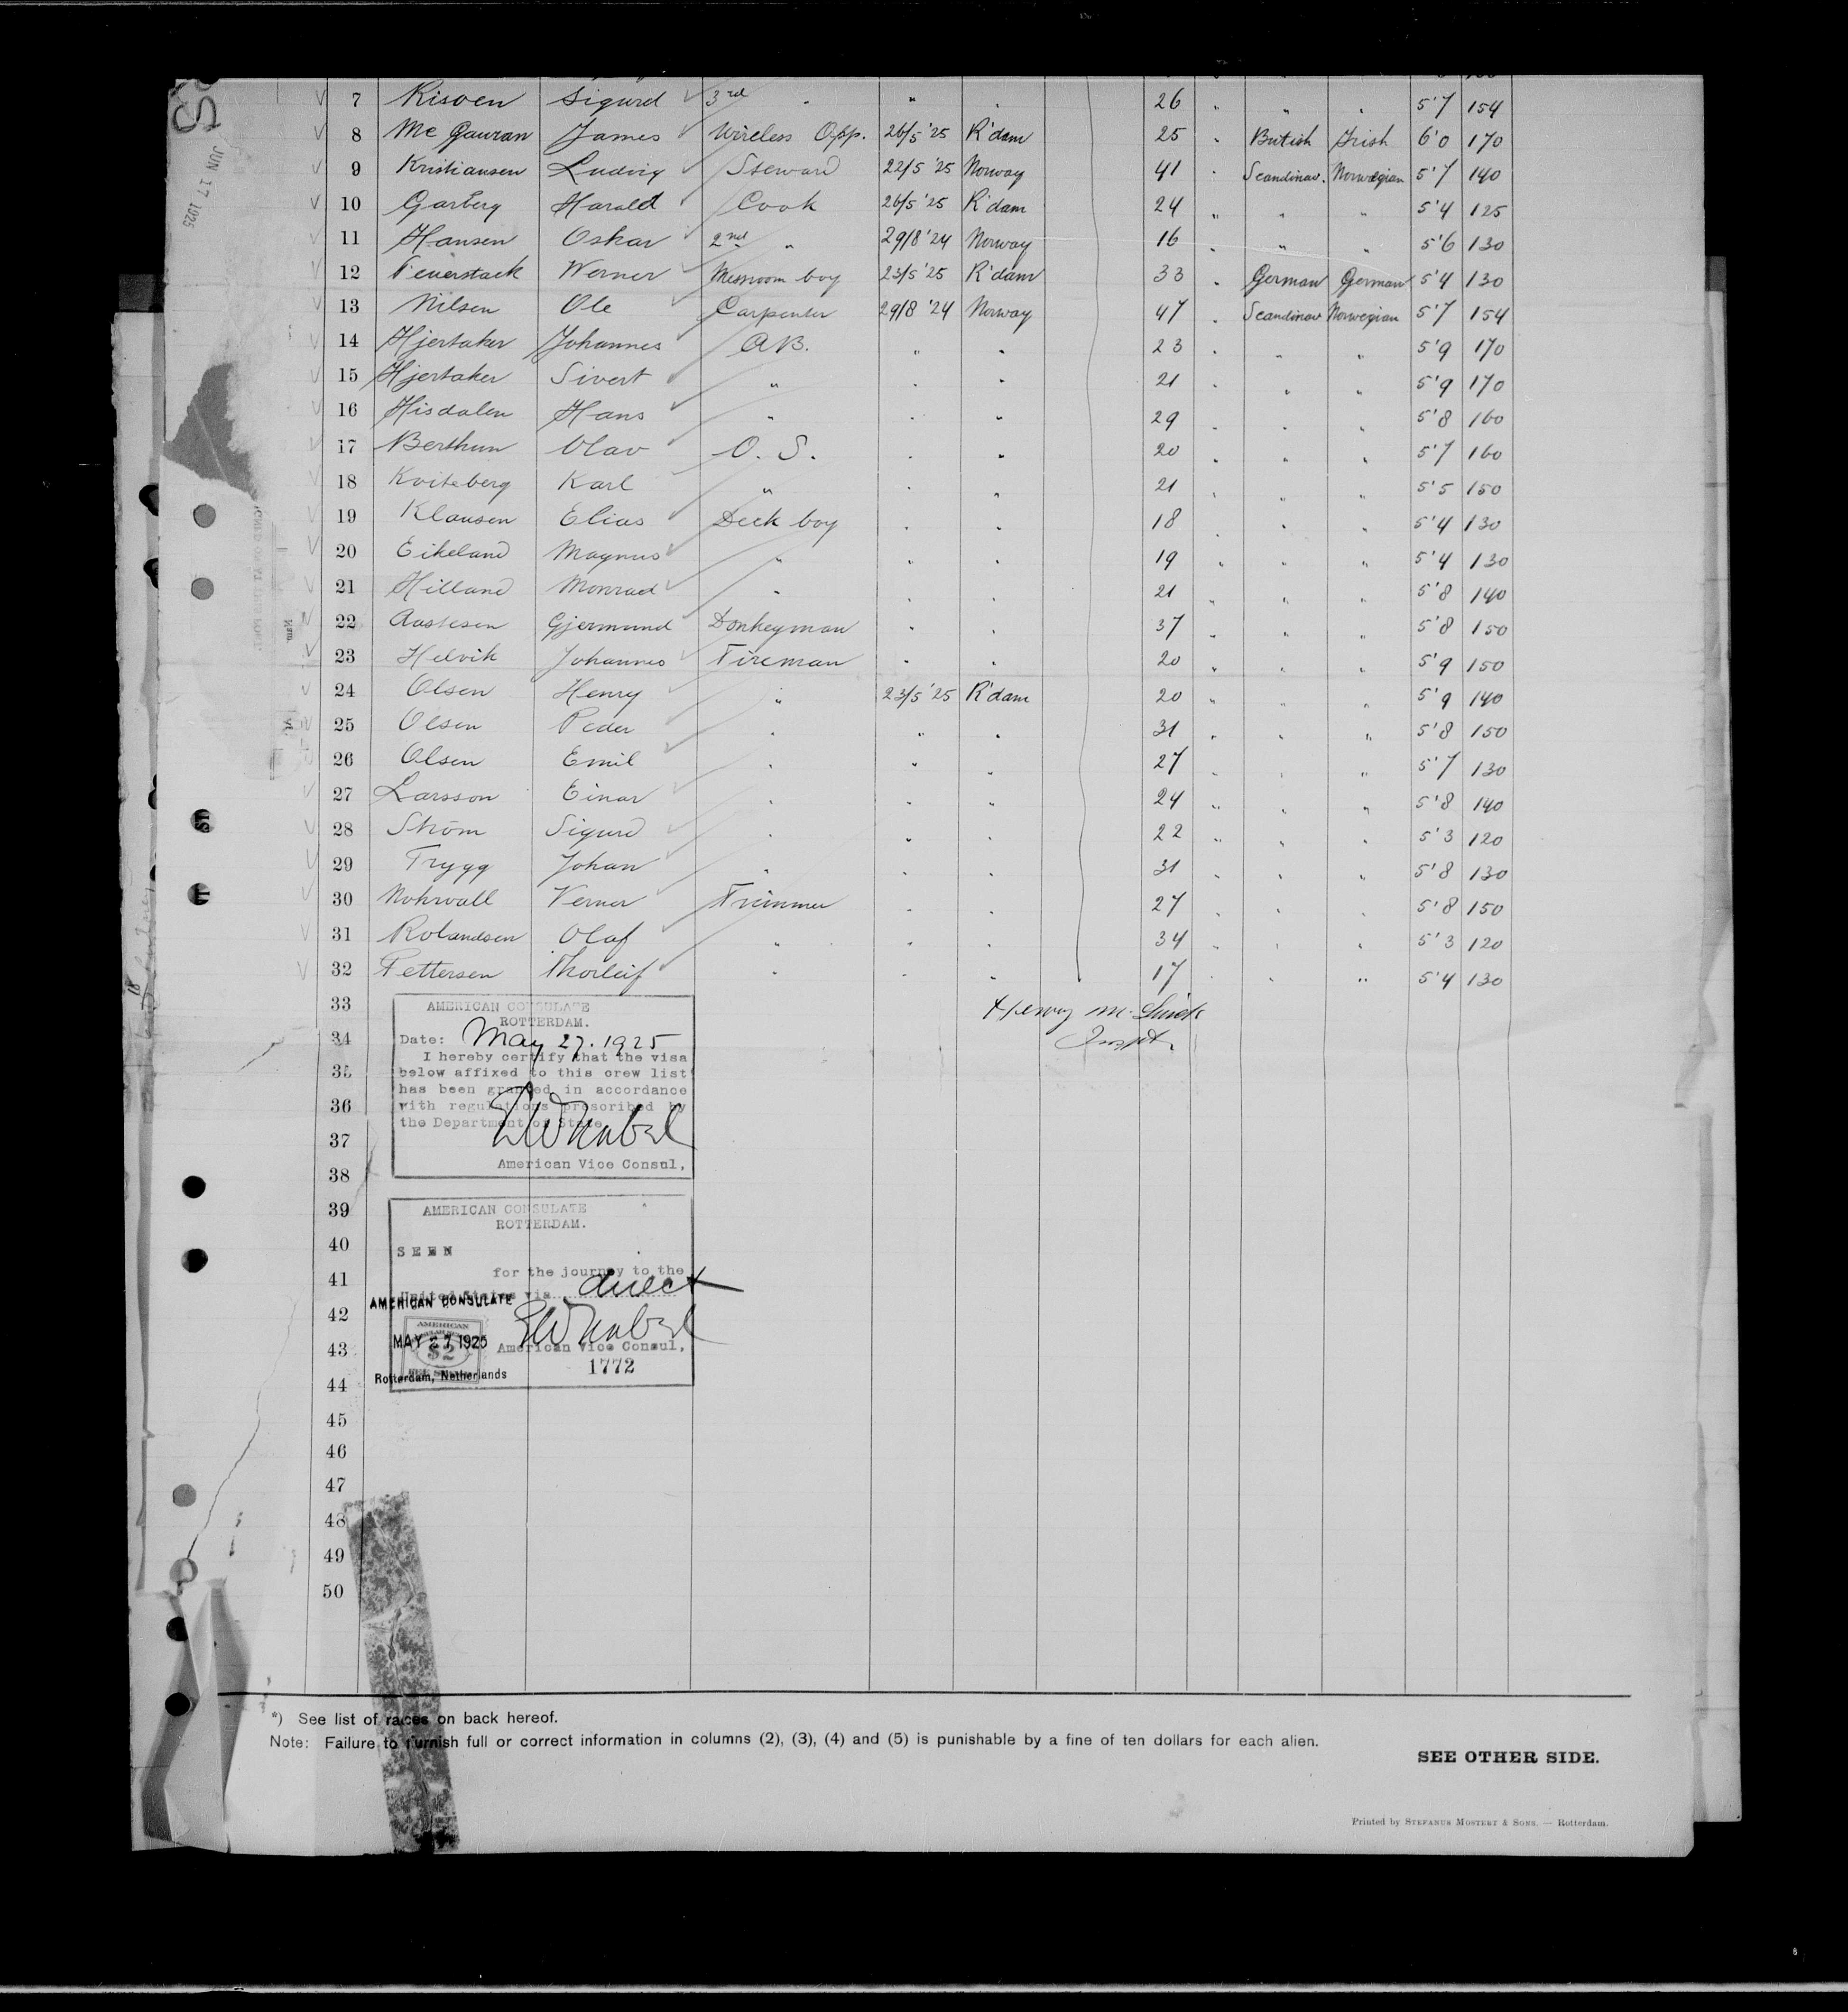 JUN 17 1925
7 Risoen Sigurd 3rd " " " 26 " " " 5'7 154
8 Mc Gauran James Wireless Opp. 26/5 '25 R'dam 25 " British Irish 6'0 170
9 Kristiansen Ludvig Steward 22/5 '25 Norway 41 " Scandinav. Norwegian 5'7 140
10 Garberg Harald Cook 26/5 '25 R'dam 24 " " " 5'4 125
11 Hansen Oskar 2nd " 29/8 '24 Norway 16 " " " 5'6 130
12 Feuerstack Werner Messroom boy 23/5 '25 R'dam 33 " German German 5'4 130
13 Nilsen Ole Carpenter 29/8 '24 Norway 47 " Scandinav Norwegian 5'7 154
14 Hjertaker Johannes A.B. " " 23 " " " 5'9 170
15 Hjertaker Sivert " " " 21 " " " 5'9 170
16 Hisdalen Hans " " " 29 " " " 5'8 160
17 Berthun Olav O. S. " " 20 " " " 5'7 160
18 Kviteberg Karl " " " 21 " " " 5'5 150
19 Klausen Elias Deck boy " " 18 " " " 5'4 130
20 Eikeland Magnus " " " 19 " " " 5'4 130
21 Hilland Monrad " " " 21 " " " 5'8 140
22 Aastesen Gjermund Donkeyman " " 37 " " " 5'8 150
23 Helvik Johannes Fireman " " 20 " " " 5'9 150
24 Olsen Henry " 23/5 '25 R'dam 20 " " " 5'9 140
25 Olsen Peder " " " 31 " " " 5'8 150
26 Olsen Emil " " " 27 " " " 5'7 130
27 Larsson Einar " " " 24 " " " 5'8 140
28 Ström Sigurd " " " 22 " " " 5'3 120
29 Trygg Johan " " " 31 " " " 5'8 130
30 Nohrvall Verner Trimmer " " 27 " " " 5'8 150
31 Rolandsen Olaf " " " 34 " " " 5'3 120
32 Pettersen Thorleif " " " 17 " " " 5'4 130
33
34
35
36
37
38
39
40
41
42
43
44
45
46
47
48
49
50
Henry M.
AMERICAN CONSULATE
ROTTERDAM.
Date: May 27. 1925
I hereby certify that the visa
below affixed to this crew list
has been granted in accordance
with regulations prescribed by
the Department of State
American Vice Consul,
AMERICAN CONSULATE
ROTTERDAM.
SEEN
for the journey to the
United States via direct
AMERICAN CONSULATE
AMERICAN
MAY 27 1925
$2
American Vice Consul,
1772
Rotterdam, Netherlands
*) See list of races on back hereof.
Note: Failure to furnish full or correct information in columns (2), (3), (4) and (5) is punishable by a fine of ten dollars for each alien.
SEE OTHER SIDE.
Printed by STEFANUS MOSTERT & SONS. — Rotterdam.